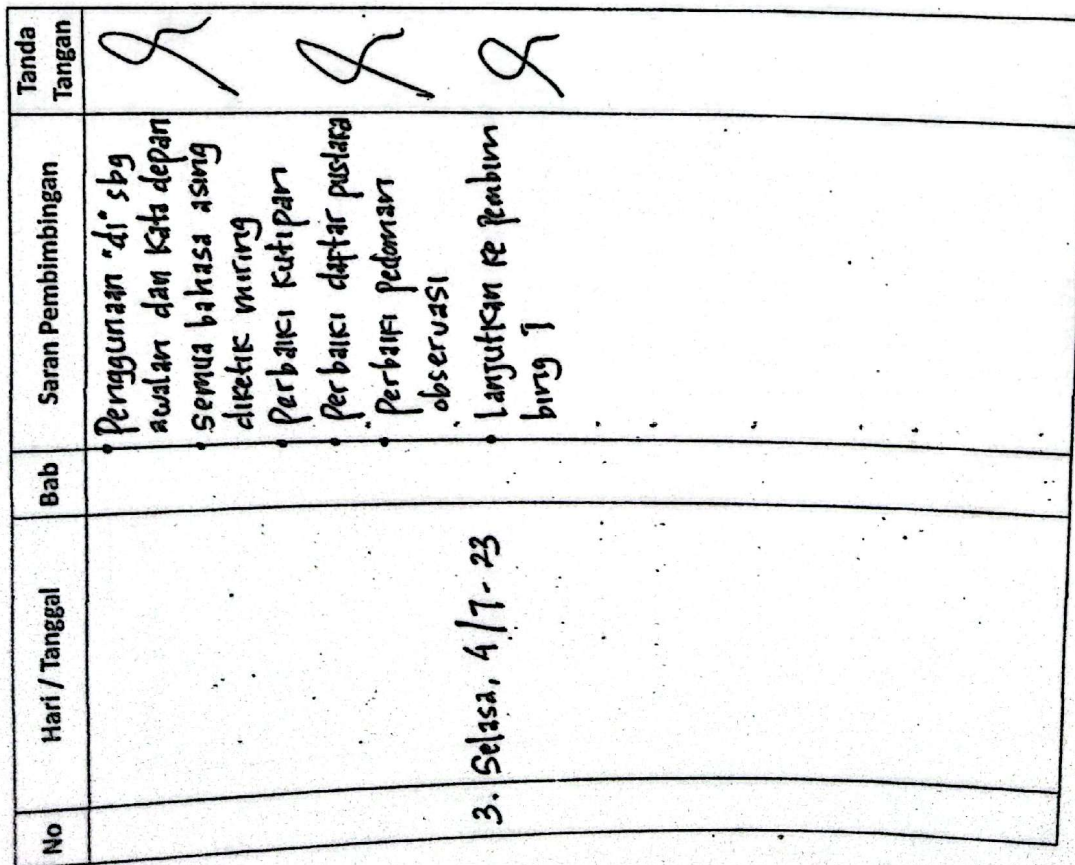 No
Hari / Tanggal
Bab
Saran Pembimbingan
Tanda
Tangan
• Penggunaan "di" sbg
awalan dan kata depan
• semua bahasa asing
diketik miring
• Perbaiki kutipan
• Perbaiki daftar pustaka
• Perbaiki pedoman
observasi
3. Selasa, 4/7-23
• Lanjutkan ke pembim
bing I